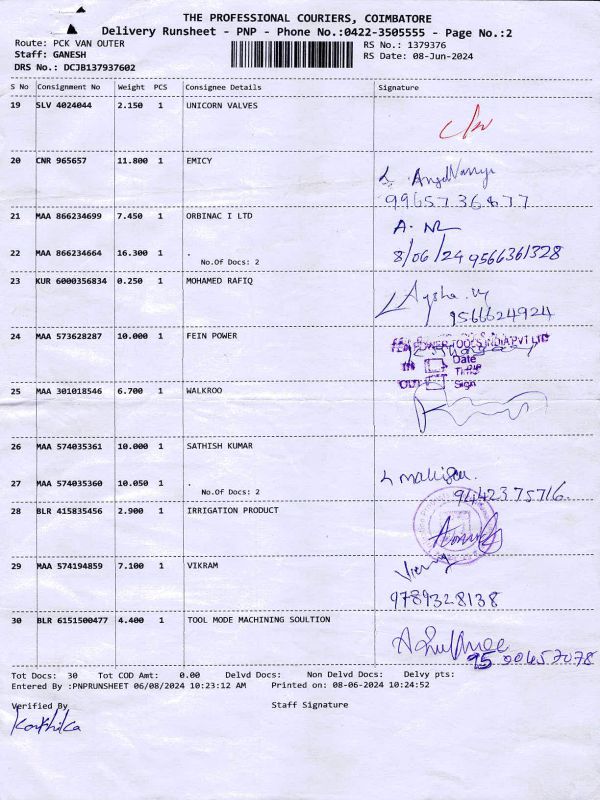 THE PROFESSIONAL COURIERS, COIMBATORE
Delivery Runsheet - PNP - Phone No.:0422-3505555 - Page No.:2
Route: PCK VAN OUTER
RS No.: 1379376
Staff: GANESH
RS Date: 08-Jun-2024
DRS No.: DCJB137937602
S No Consignment No Weight PCS Consignee Details Signature
19 SLV 4024044 2.150 1 UNICORN VALVES
20 CNR 965657 11.800 1 EMICY
9965736877
21 MAA 866234699 7.450 1 ORBINAC I LTD
22 MAA 866234664 16.300 1 .
8/06/24 9566361328
No.Of Docs: 2
23 KUR 6000356834 0.250 1 MOHAMED RAFIQ
Aysha
9566624924
24 MAA 573628287 10.000 1 FEIN POWER
POWER TOOLS INDIA PVT LTD
IN Date
OUT Sign
25 MAA 301018546 6.700 1 WALKROO
26 MAA 574035361 10.000 1 SATHISH KUMAR
27 MAA 574035360 10.050 1 .
No.Of Docs: 2
9442375716.
28 BLR 415835456 2.900 1 IRRIGATION PRODUCT
29 MAA 574194859 7.100 1 VIKRAM
9789328138
30 BLR 6151500477 4.400 1 TOOL MODE MACHINING SOULTION
Tot Docs: 30 Tot COD Amt: 0.00 Delvd Docs: Non Delvd Docs: Delvy pts:
Entered By :PNPRUNSHEET 06/08/2024 10:23:12 AM Printed on: 08-06-2024 10:24:52
Verified By Staff Signature
Karthika